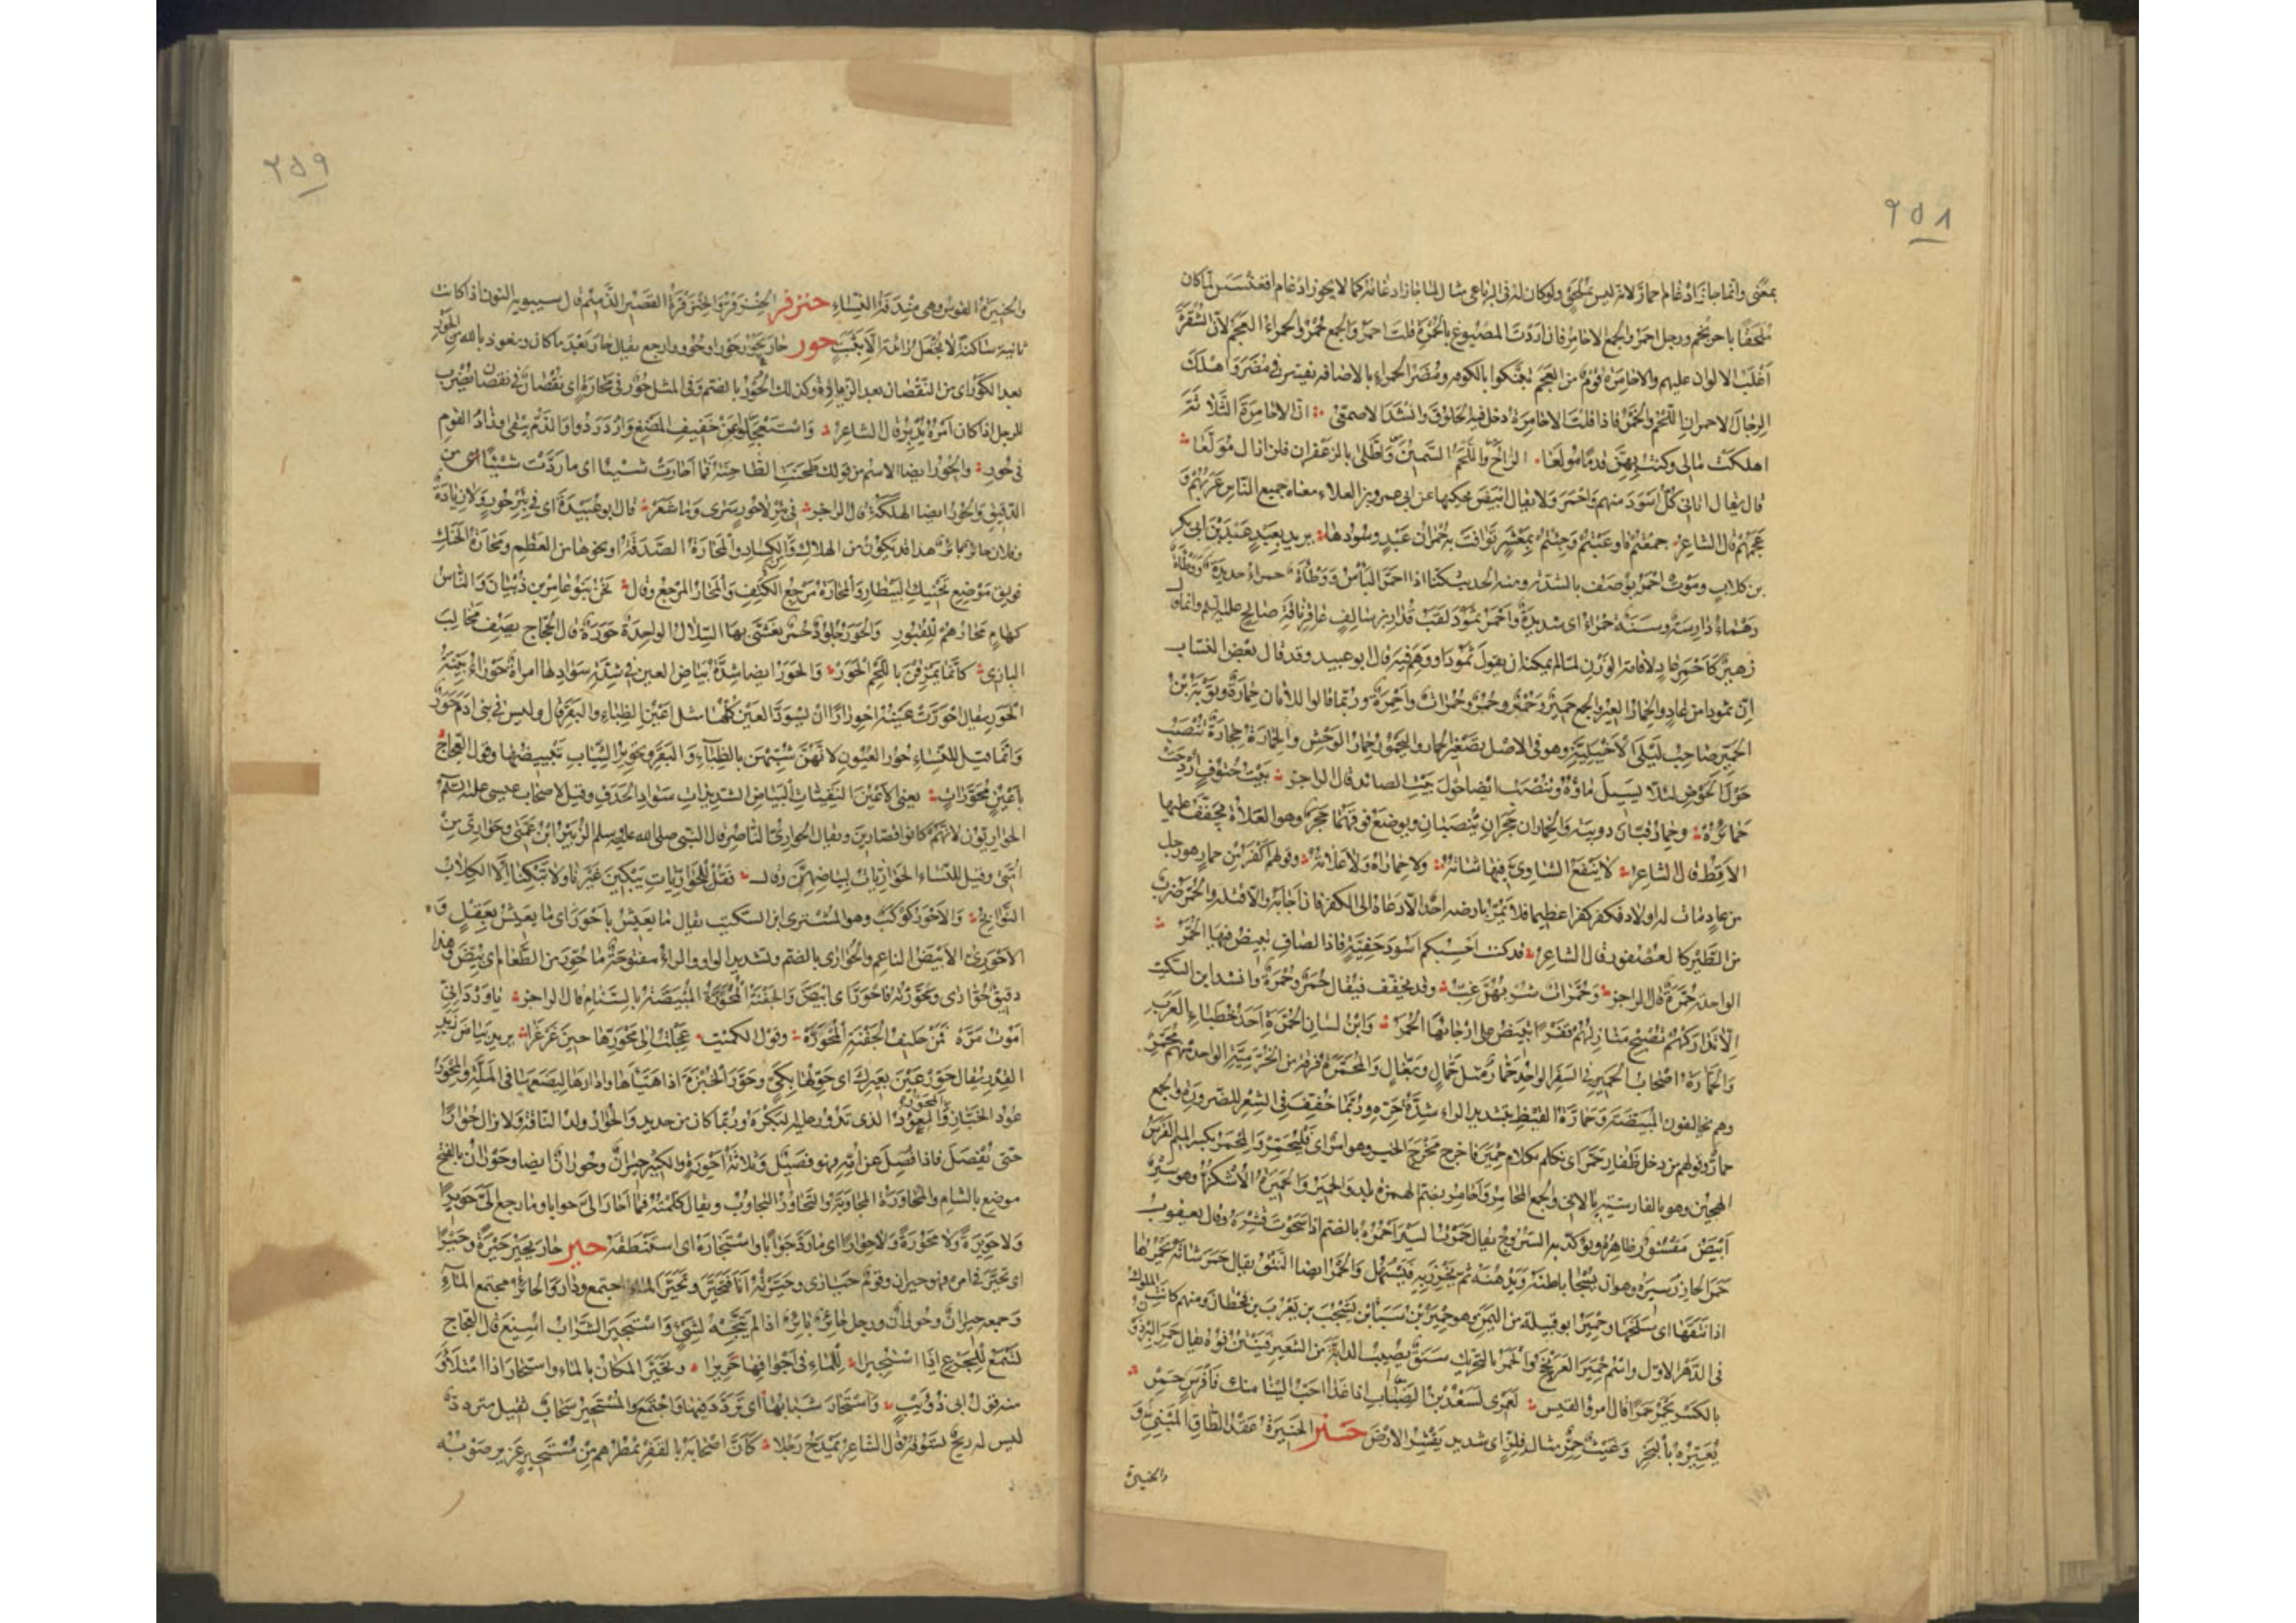 ٢٥٨
بمعنى وانما جاز ادغام احمارّ لانه ليس بملحق ولو كان له في الرباعي مثال لما جاز ادغامه كما لا يجوز ادغام اقعنسس لما كان
ملحقا باحرنجم ورجل احمر والجمع الاحامر فان اردت المصبوغ بالحمرة قلت احمر والجمع حمر والحمراء العجم لان الشقرة
اغلب الالوان عليهم والاحامرة قوم من العجم تبنكوا بالكوفه ومضر الحمراء بالاضافه نفيتر في مضر واهلك
الرجال الاحمران اللحم والخمر فاذا قلت الاحامرة دخل فيه الخلوق وانشد الاصمعي ان الاحامرة الثلاثة
اهلكت مالي وكنت بهن قدما مولعا الراح واللحم السمين واطلى بالزعفران فلن ازال مولعا
قال يقال اتاني كل اسود منهم واحمر ولا يقال ابيض يحكيها عن ابي عمرو بن العلاء معناه جميع الناس عربهم و
عجمهم قال الشاعر جمعتم فاوعيتم وجئتم بمعشر توافت به حمران عبد وسودها يريد بعبد عبد بن ابي بكر
بن كلاب وموت احمر يوصف بالشدة ومنه الحديث كنا اذا احمر الباس ووطأة حمراء جديدة ووطأة
دهماء دارسة وسنة حمراء اى شديدة واحمر ثمود لقب قدار بن سالف عاقر ناقة صالح عليه السلم وانما قال
زهير كاحمر عاد لاقامة الوزن لما لم يمكنه ان يقول ثمود او وهم فيه قال ابو عبيد وقد قال بعض النساب
ان ثمودا من عاد والحمار العير والجمع حمير وحمر وحمر وحمرات واحمرة وربما قالوا للاتان حمارة وتوبة بن
الحمير صاحب ليلى الاخيلية وهو في الاصل تصغير الحمار واليحمور حمار الوحش والحمارة حجارة تنصب
حول الحوض لئلا يسيل ماؤه وتنصب ايضا حول بيت الصائد قال الراجز بيت حتوف اردحت
حمائره وحمار قبان دويبة والحماران حجران ينصبان ويوضع فوقهما حجر وهو العلاة يجفف عليها
الاقط قال الشاعر لا ينفع الشاوى فيها شاته ولا حماراه ولا علاته وقولهم اكفر من حمار هو رجل
من عاد مات له اولاد فكفر كفرا عظيما فلا يمر بارضه احد الا دعاه الى الكفر فان اجابه والا قتله والحمر ضرب
من الطير كالعصفور قال الشاعر قد كنت احسبكم اسود خفية فاذا لصاف تبيض فيها الحمر
الواحدة حمرة قال الراجز وحمرات شربهن غب وقد يخفف فيقال حمر وحمرة وانشد ابن السكيت
الا تداركهم تصبح منازلهم قفرا تبيض على ارجائها الحمر وابن لسان الحمرة احد خطباء العرب
والحمارة اصحاب الحمير في السفر الواحد حمار مثل جمال وبغال والمحمرة فرقة من الخرمية الواحد منهم محمر
وهم يخالفون المبيضة وحمارة القيظ بتشديد الراء شدة حره وربما خفف في الشعر للضرورة والجمع
حمار وقولهم من دخل ظفار حمر اى تكلم بكلام حمير فاخرج مخرج الخبر وهو امر اى فليحمر والمحمر بكسر الميم الفرس
الهجين وهو بالفارسية بالانى والجمع المحامر واحامر بضم الهمزة بلد والحمير والحميرة الاشكز وهو سير
ابيض مقشور ظاهره ويؤكد به السروج يقال حمرت السير احمره بالضم اذا سحوت قشره وقال يعقوب
حمر الخارز سيره وهو ان يسحا باطنه ويدهنه ثم يخرز به فيسهل والحمر ايضا النتق يقال حمر شاته يحمرها
اذا نتقها اى سلخها وحمير ابو قبيلة من اليمن هو حمير بن سبأ بن يشجب بن يعرب بن قحطان ومنهم كانت الملوك
في الدهر الاول واسم حمير العرنجج والحمر بالتحريك سنق يصيب الدابة من الشعير فينتن فوه يقال حمر البرذون
بالكسر يحمر حمرا قال امرؤ القيس لعمرى لسعد بن الضباب اذا غدا احب الينا منك فا فرس حمر
يعيره بالبخر وغيث حمر مثال فلز اى شديد يقشر الارض حنر الحنيرة عقد الطاق المبني و
والحنيرة
٢٥٩
والحنيرة القوس وهي مندفة النساء حنزقر الحنزقر والحنزقرة القصير الدميم قال سيبويه النون اذا كانت
ثانية ساكنة لا تجعل زائدة الا بثبت حور حار يحور حورا وحوورا رجع يقال حار بعد ما كان ونعوذ بالله من الحور
بعد الكور اى من النقصان بعد الزيادة وكذلك الحور بالضم وفي المثل حور في محارة اى نقصان في نقصان يضرب
للرجل اذا كان امره يدبر قال الشاعر واستعجلوا عن خفيف المضغ وازدردوا والذم يبقى وزاد القوم
في حور والحور ايضا الاسم من قولك طحنت الطاحنة فما احارت شيئا اى ما ردت شيئا من
الدقيق والحور ايضا الهلكة قال الراجز في بئر لا حور سرى وما شعر قال ابو عبيدة اى في بئر حور ولا زيادة
وفلان حائر بائر هذا قد يكون من الهلاك والكساد والمحارة الصدفة او نحوها من العظم ومحارة الحنك
فويق موضع تحنيك البيطار والمحارة مرجع الكتف والمحار المرجع وقال نحن بنو عامر بن ذبيان والناس
كهام محارهم للقبور والحور جلود حمر يغشى بها السلال الواحدة حورة قال العجاج يصف مخالب
البازى كانما يمزقن باللحم الحور والحور ايضا شدة بياض العين في شدة سوادها امراة حوراء بينة
الحور يقال احورت عينه احورارا ان يسود العين كلها مثل اعين الظباء والبقر قال وليس في بني ادم حور
وانما قيل للنساء حور العيون لانهن شبهن بالظباء والبقر وتحوير الثياب تبييضها وقول العجاج
باعين محورات يعني الاعين النقيات البياض الشديدات سواد الحدق وقيل لاصحاب عيسى عليه السلم
الحواريون لانهم كانوا قصارين ويقال الحوارى الناصر قال النبي صلى الله عليه وسلم الزبير ابن عمتي وحوارى من
امتي وقيل للنساء الحواريات لبياضهن وقال فقل للحواريات يبكين غيرنا ولا تبكنا الا الكلاب
النوابح والاحور كوكب وهو المشترى ابن السكيت يقال ما يعيش باحور اى ما يعيش بعقل و
الاحورى الابيض الناعم والحوارى بالضم وتشديد الواو والراء مفتوحة ما حور من الطعام اى بيض وهذا
دقيق حوارى وحورته فاحور اى ابيض والجفنة المحورة المبيضة بالسنام قال الراجز يا ورد اني
اموت مره فمن حليف الجفنة المحوره وقول الكميت عجلت الى محورها حين غرغرا يريد بياض زبد
القدر يقال حور عين بعيرك اى حوطها بكي وحور الخبزة اذا هياها وادارها ليضعها في الملة والمحور
عود الخباز والمحور العود الذى تدور عليه البكرة وربما كان من حديد والحوار ولد الناقة ولا يزال حوارا
حتى يفصل فاذا فصل عن امه فهو فصيل وثلاثة احورة والكثير حيران وحوران ايضا وحوران بالفتح
موضع بالشام والمحاورة المجاوبة والتحاور التجاوب ويقال كلمته فما احار الي جوابا وما رجع الي حويرا
ولا حويرة ولا محورة ولا حوارا اى ما رد جوابا واستحاره اى استنطقه حير حار يحير حيرة وحيرا
اى تحير في امره فهو حيران وقوم حيارى وحيرته انا فتحير وتحير الماء اجتمع ودار والحائر مجتمع الماء
وجمعه حيران وحوران ورجل حائر بائر اذا لم يتجه لشئ واستحير الشراب اسيغ قال العجاج
تسمع للجرع اذا استحيرا للماء في اجوافها خريرا وتحير المكان بالماء واستحار اذا امتلأ و
منه قول ابي ذؤيب واستحار شبابها اى تردد فيها واجتمع والمستحير سحاب ثقيل متردد
ليس له ريح تسوقه قال الشاعر يمدح رجلا كان اصحابه بالقفر يمطرهم من مستحير غزير صوبه